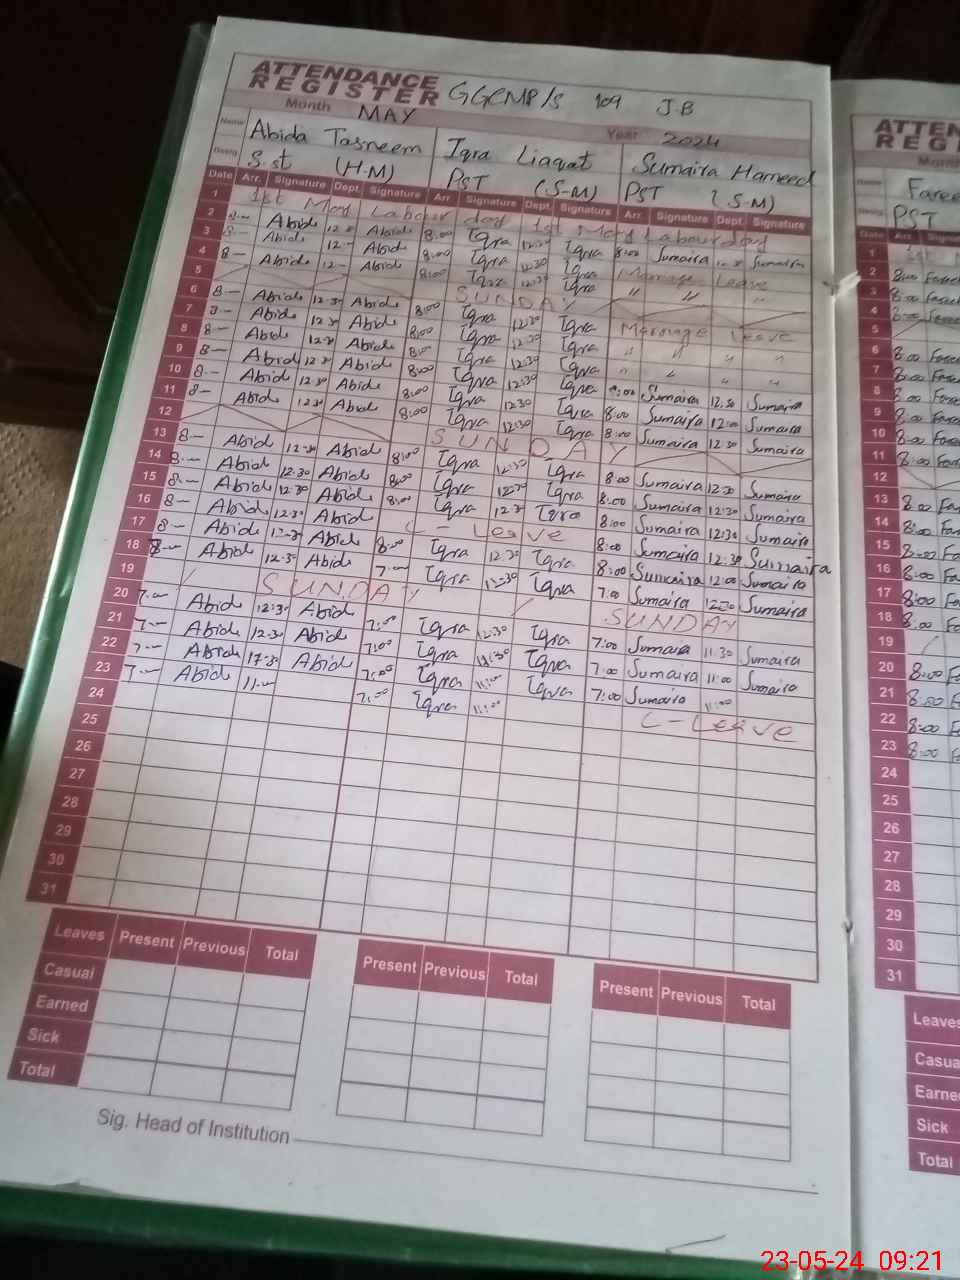 ATTENDANCE REGISTER GGCMP/s 109 J.B
Month MAY Year 2024
Name Abida Tasneem Iqra Liaqat Sumaira Hameed
Desig S.st (H-M) PST (S-M) PST (S-M)
Date Arr. Signature Dept. Signature Arr. Signature Dept. Signature Arr. Signature Dept. Signature
1 1st May Labour day 1st May Labour day
2 8- Abida Abida 8:00 Iqra 12:30 Iqra 8:00 Sumaira Sumaira
3 8- Abida 12- Abida 8:00 Iqra 12:30 Iqra Marriage Leave
4 8- Abida 12- Abida 8:00 Iqra 12:30 Iqra " " "
5 SUNDAY
6 8- Abida 12-30 Abida 8:00 Iqra 12:30 Iqra Marriage Leave
7 8- Abida 12-30 Abida 8:00 Iqra 12:30 Iqra " " " "
8 8- Abida 12-30 Abida 8:00 Iqra 12:30 Iqra " " " "
9 8- Abida 12-30 Abida 8:00 Iqra 12:30 Iqra 8:00 Sumaira 12:30 Sumaira
10 8- Abida 12-30 Abida 8:00 Iqra 12:30 Iqra 8:00 Sumaira 12:00 Sumaira
11 8- Abida 12-30 Abida 8:00 Iqra 12:30 Iqra 8:00 Sumaira 12:30 Sumaira
12 SUNDAY
13 8- Abida 12-30 Abida 8:00 Iqra 12:30 Iqra 8:00 Sumaira 12:30 Sumaira
14 8- Abida 12-30 Abida 8:00 Iqra 12:30 Iqra 8:00 Sumaira 12:30 Sumaira
15 8- Abida 12-30 Abida 8:00 Iqra 12:30 Iqra 8:00 Sumaira 12:30 Sumaira
16 8- Abida 12-30 Abida C-Leave 8:00 Sumaira 12:30 Sumaira
17 8- Abida 12-30 Abida 8:00 Iqra 12:30 Iqra 8:00 Sumaira 12:00 Sumaira
18 Abida 12-30 Abida 7:00 Iqra 12:30 Iqra 7:00 Sumaira 12:30 Sumaira
19 SUNDAY SUNDAY
20 7- Abida 12:30 Abida 7:00 Iqra 12:30 Iqra 7:00 Sumaira 11:30 Sumaira
21 7- Abida 12-30 Abida 7:00 Iqra 11:30 Iqra 7:00 Sumaira 11:00 Sumaira
22 7- Abida Abida 7:00 Iqra 11:00 Iqra 7:00 Sumaira 11:00
23 7- Abida 11- 7:00 Iqra 11:00 C-Leave
24
25
26
27
28
29
30
31
Leaves Present Previous Total Present Previous Total Present Previous Total
Casual
Earned
Sick
Total
Sig. Head of Institution
ATTEN
REG
Name
PST
Date
1
2 8:00
3 8:00
4 8:00
5
6 8:00
7 8:00
8 8:00
9 8:00
10 8:00
11 8:00
12
13 8:00
14 8:00
15 8:00
16 8:00
17 8:00
18 8:00
19
20 8:00
21
22 8:00
23 8:00
24
25
26
27
28
29
30
31
Leaves
Casua
Earne
Sick
Total
23-05-24 09:21